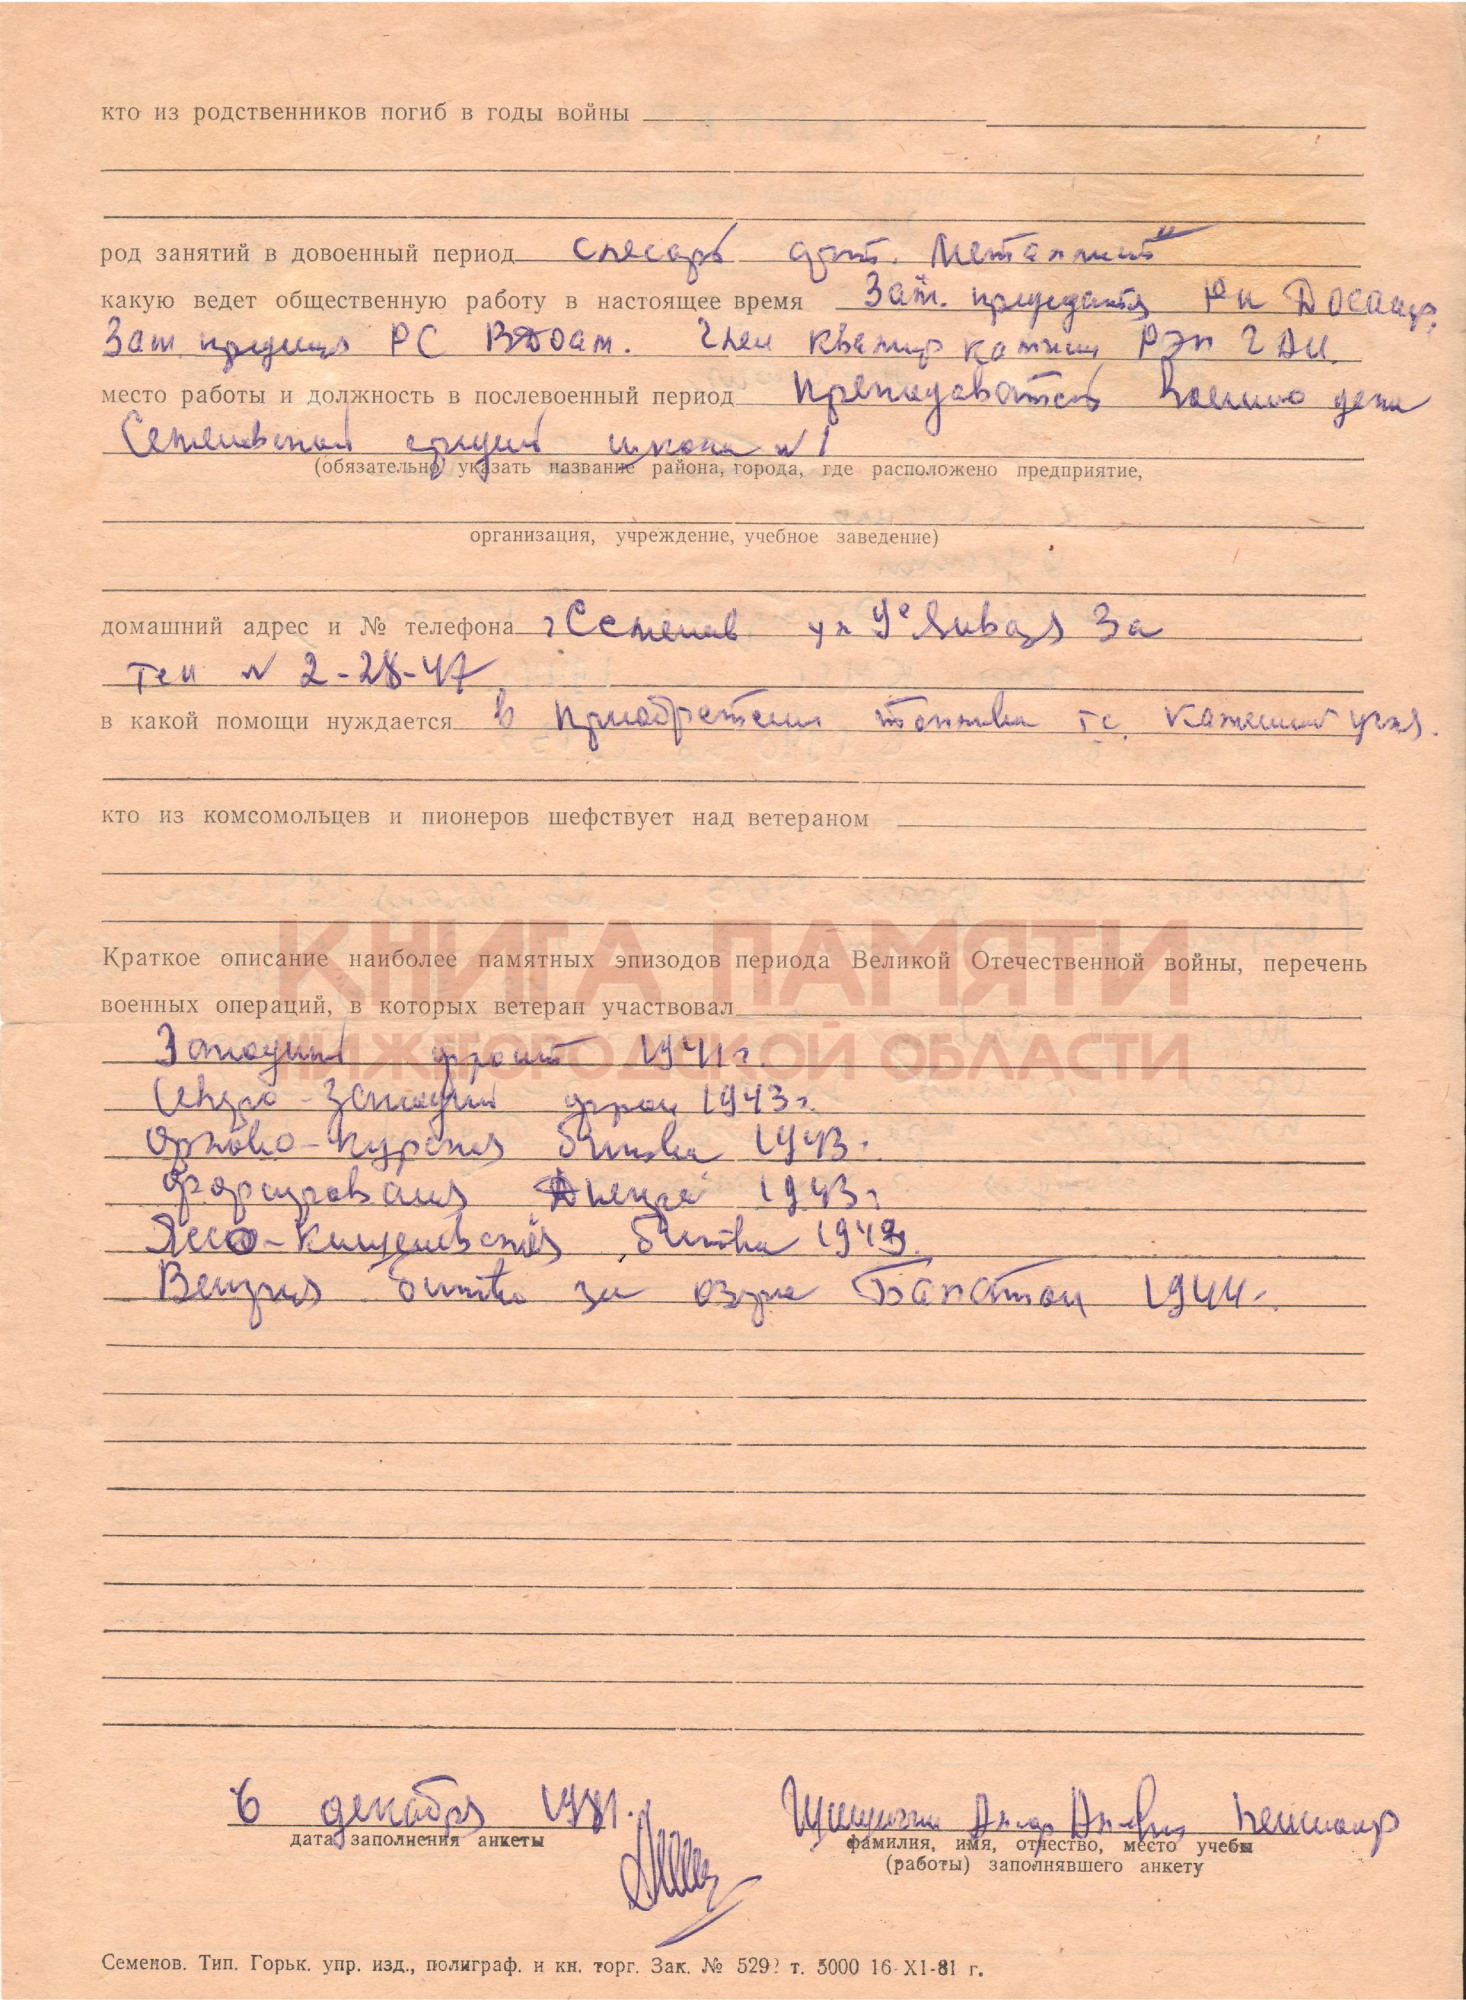 кто из родственников погиб в годы войны
род занятий в довоенный период слесарь арт. Металлист"
какую ведет общественную работу в настоящее время Зам. председателя РК ДОСААФ.
Зам. РС ВДОАМ. Член РЭП ГАИ.
место работы и должность в послевоенный период Преподаватель Военного дела
Семеновской средней школа №1
(обязательно указать название района, города, где расположено предприятие,
организация, учреждение, учебное заведение)
домашний адрес и № телефона г Семенов ул 9е Января 3а
тел № 2-28-47
в какой помощи нуждается в Приобретении топлива т.е. каменный угля.
кто из комсомольцев и пионеров шефствует над ветераном
КНИГА ПАМЯТИ
Краткое описание наиболее памятных эпизодов периода Великой Отечественной войны, перечень
военных операций, в которых ветеран участвовал
НИЖЕГОРОДСКОЙ ОБЛАСТИ
Западный фронт 1941г.
Северо-Западный фрон 1943г.
Орлово-Курская битва 1943г.
Форсирования Днепра 1943г
Ясско-Кишеневская битва 1943.
Венгрия битва за озеро Балатон 1944г.
6 декабря 1981.
дата заполнения анкеты
фамилия, имя, отчество, место учебы
(работы) заполнявшего анкету
Семенов. Тип. Горьк. упр. изд., полиграф. и кн. торг. Зак. № 5292 т. 5000 16-XI-81 г.